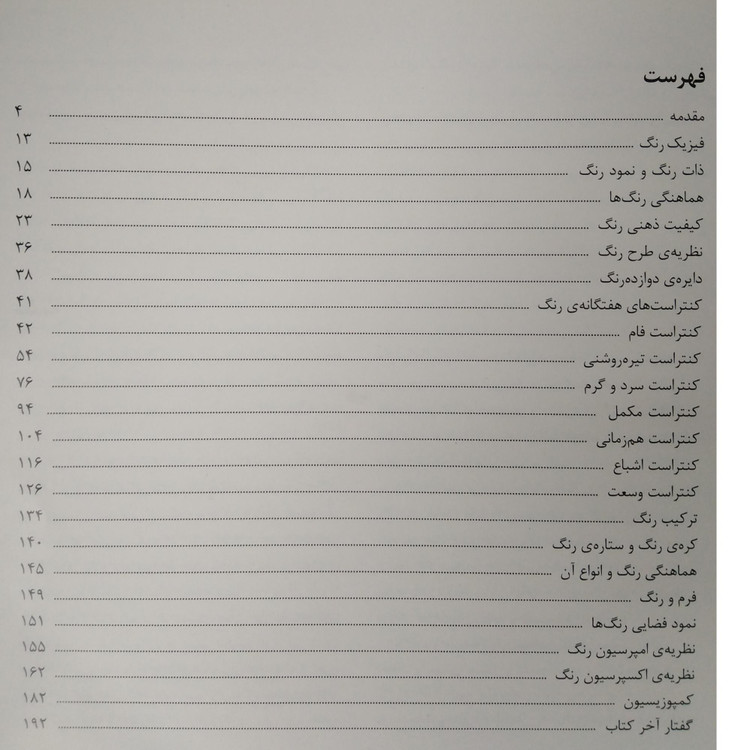 فهرست
مقدمه ۴
فیزیک رنگ ۱۳
ذات رنگ و نمود رنگ ۱۵
هماهنگی رنگ‌ها ۱۸
کیفیت ذهنی رنگ ۲۳
نظریه‌ی طرح رنگ ۳۶
دایره‌ی دوازده‌رنگ ۳۸
کنتراست‌های هفتگانه‌ی رنگ ۴۱
کنتراست فام ۴۲
کنتراست تیره‌روشنی ۵۴
کنتراست سرد و گرم ۷۶
کنتراست مکمل ۹۴
کنتراست هم‌زمانی ۱۰۴
کنتراست اشباع ۱۱۶
کنتراست وسعت ۱۲۶
ترکیب رنگ ۱۳۴
کره‌ی رنگ و ستاره‌ی رنگ ۱۴۰
هماهنگی رنگ و انواع آن ۱۴۵
فرم و رنگ ۱۴۹
نمود فضایی رنگ‌ها ۱۵۱
نظریه‌ی امپرسیون رنگ ۱۵۵
نظریه‌ی اکسپرسیون رنگ ۱۶۲
کمپوزیسیون ۱۸۲
گفتار آخر کتاب ۱۹۲